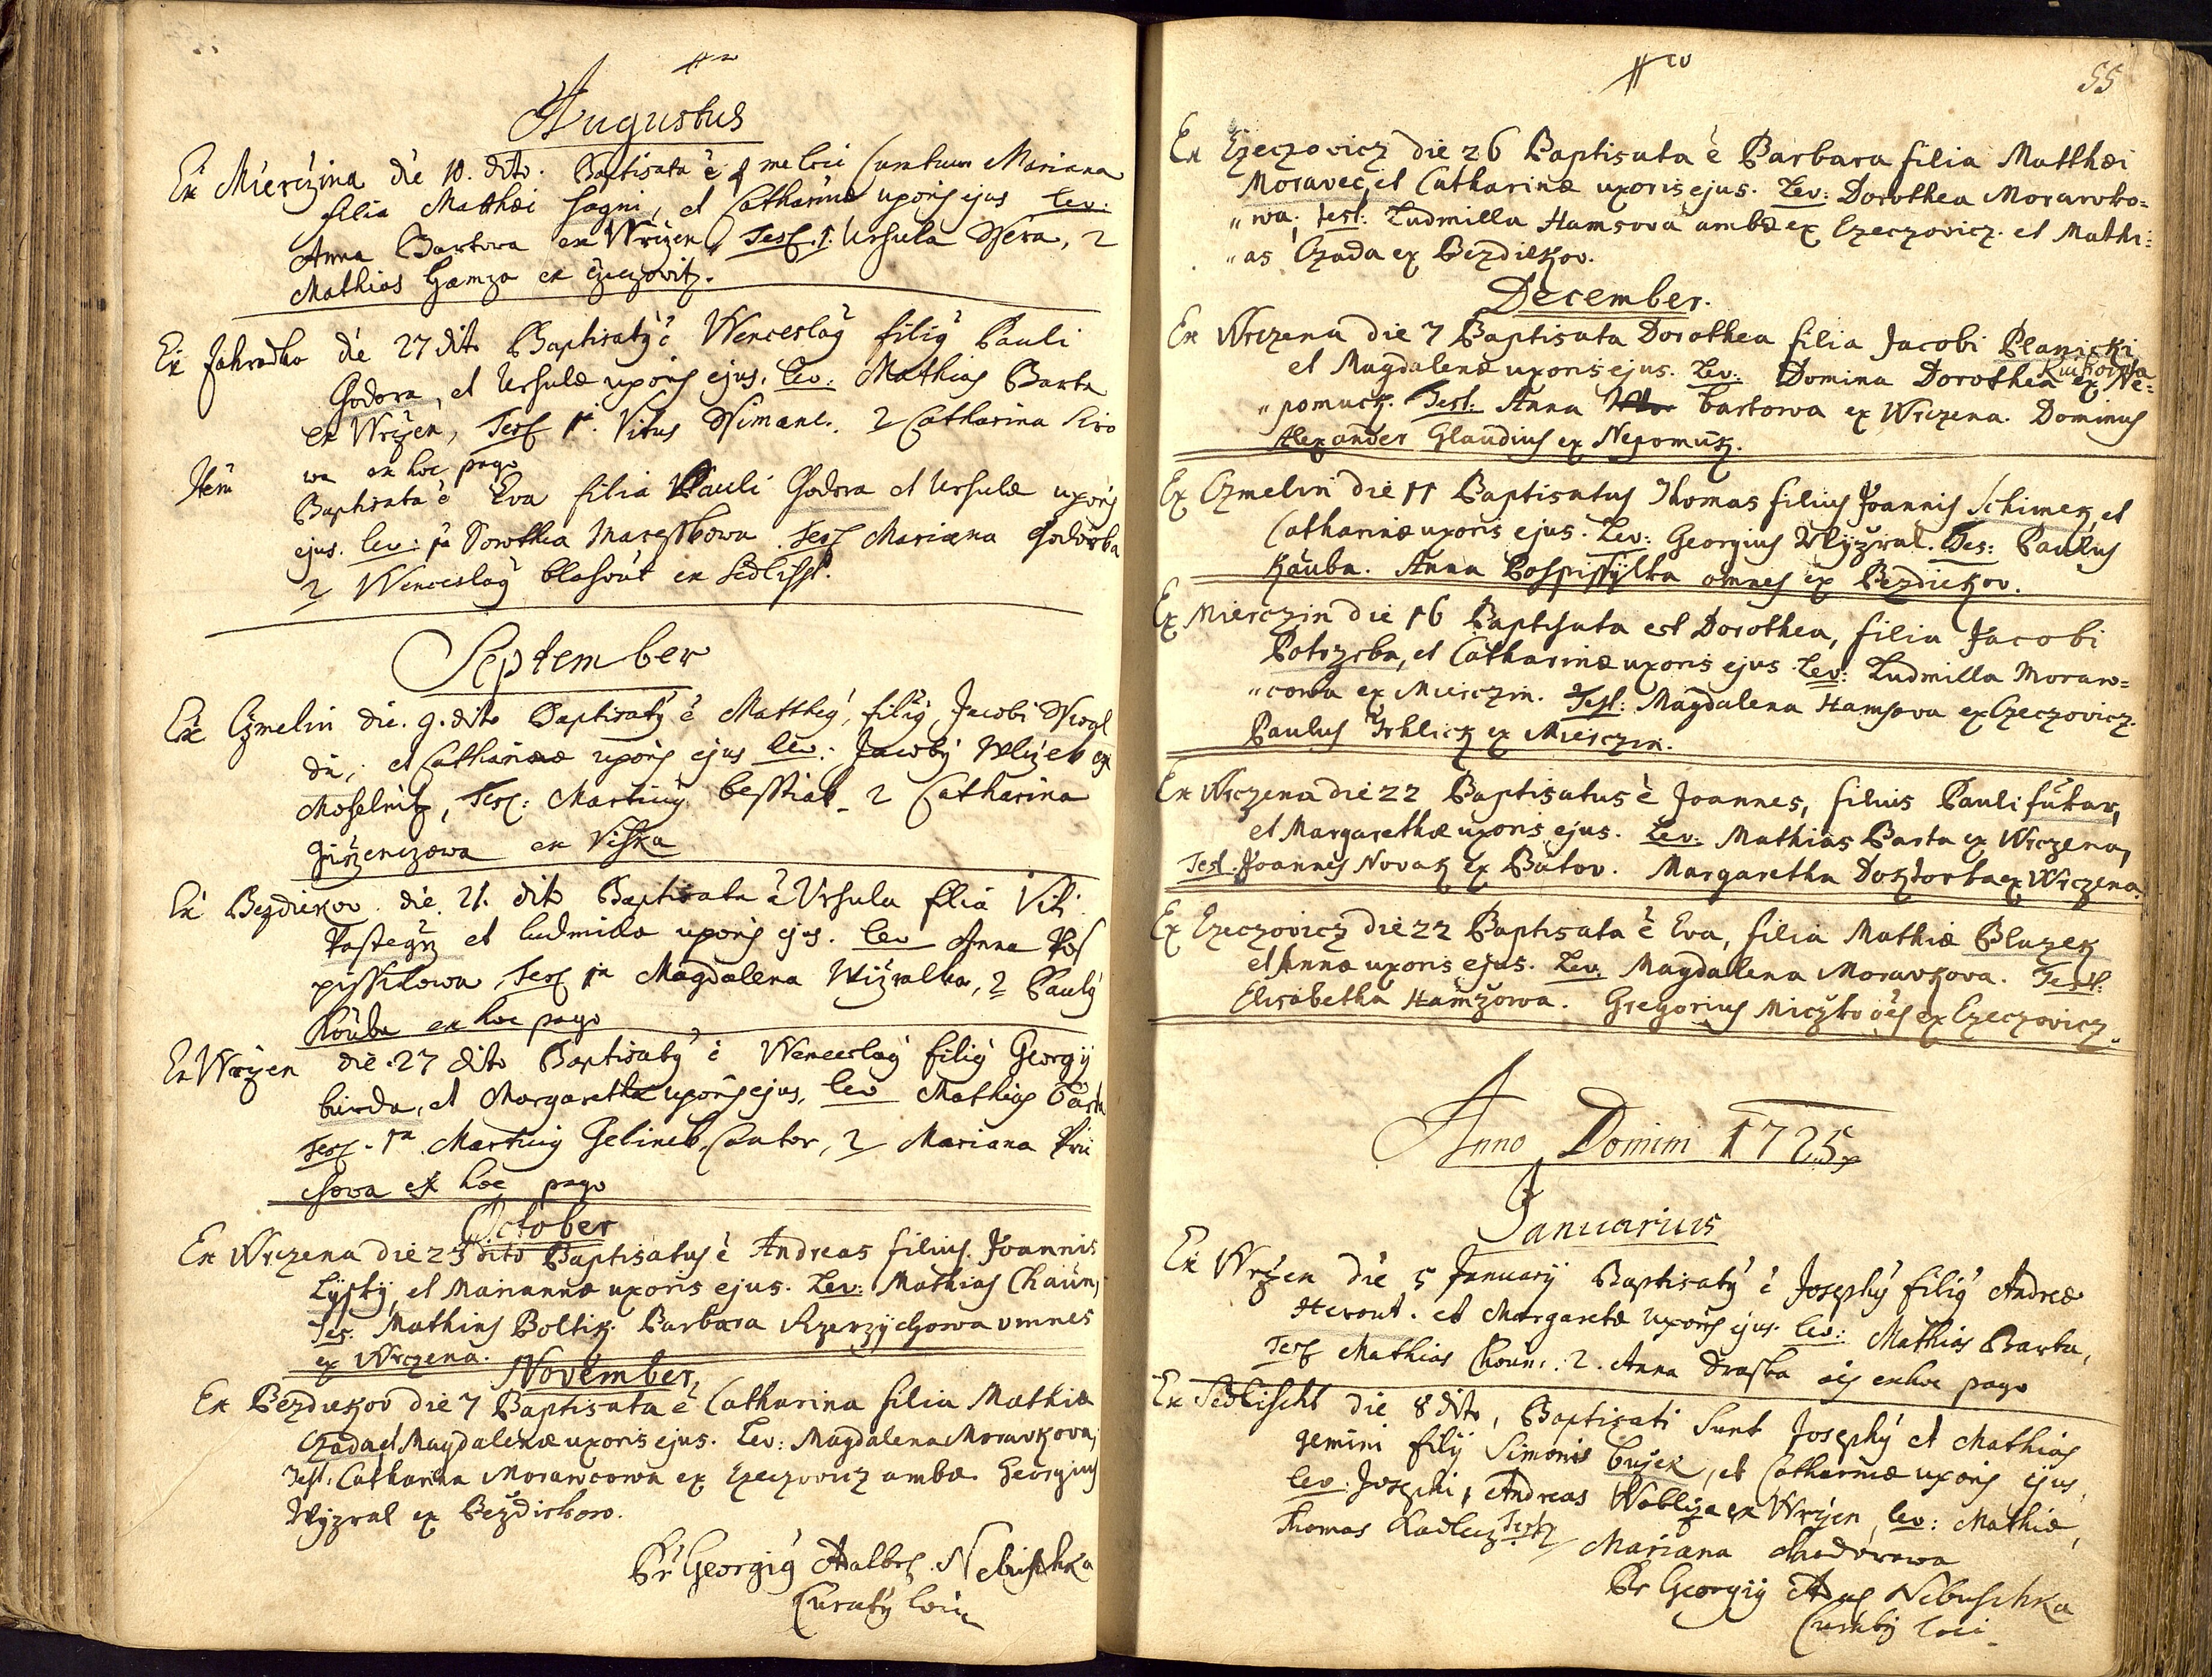 Augustus
Ex Mierczina die 10. dito. Baptisata ē me loci Curatum Mariana
filia Matthæi et Catharinæ uxoris ejus Lev:
Anna Bartova ex Wrczen, Test. 1. Ursula 2
Mathias Hamza ex Czeczovitz.
Ex Zahradko die 27 dito Baptisatÿ ē Wenceslaÿ filiÿ Pauli
Godora, et Ursulæ uxoris ejus, Lev: Mathias Barta
ex Wrczen, Test 1. Vitus 2 Catharina
wa ex hoc pago
Item Baptisata ē Eva filia Pauli Godora et Ursulæ uxoris
ejus. Lev: Dorothea Test Mariana
2 Wenceslaÿ ex Sedlisst.
September
Ex Czmelin die. 9. dito Baptisatÿ ē Mattheÿ, filiÿ Jacobi
et Catharinæ uxoris ejus Lev: Jacobÿ ex
Test: Martinÿ 2 Catharina
ex Viska
Ex Bezdiekov die 21. dito Baptisata ē Ursula filia Viti
et Ludmilla uxoris ejus. Lev Anna Pos
pissilowa, Test 1a Magdalena Wizralka, 2 Paulÿ
Kouba ex hoc pago
Ex Wrczen die 27 dito Baptisatÿ ē Wenceslaÿ filiÿ Georgÿ
burda, et Margarethæ uxoris ejus, Lev Mathias Barta
Test. 1a Martinÿ Gelinek Cantor, 2 Mariana
ex hoc pago
October
Ex Wrczena die 23 dito Baptisatus ē Andreas filius Joannis
Lÿstÿ, et Mariannæ uxoris ejus. Lev: Mathias Chaun,
Tes. Mathias Boltik. Barbara omnes
ex Wrczena.
November,
Ex Bezdiekov die 7 Baptisata ē Catharina filia Mathiæ
Czada et Magdalenæ uxoris ejus. Lev: Magdalena Moravkova,
Test: Catharina Morawcowa ex Czeczovicz ambæ Georgius
Wyzral ex Bezdiekow.
Pr Georgiÿ Adalb. Nebuschka
Curatÿ loci
55
Ex Czeczovicz die 26 Baptisata ē Barbara filia Matthæi
Moravec, et Catharinæ uxoris ejus. Lev: Dorothea Morawko=
"wa, test: Ludmilla Hamsova ambæ ex Czeczovicz. et Mathi=
"as Czada ex Bezdiekov.
December.
Ex Wrczena die 7 Baptisata Dorothea filia Jacobi Planicki
et Magdalenæ uxoris ejus. Lev: Domina Dorothea ex Ne=
"pomuck. Test: Anna bartowa ex Wrczena. Dominus
Alexander Glaudius ex Nepomuk.
Ex Czmelin die 11 Baptisatus Thomas filius Joannis Schimek, et
Catharinæ uxoris ejus. Lev: Georgius Wÿzral. Tes: Paulus
Kauba. Anna Pospissylka omnes ex Bezdiekov.
Ex Mierczin die 16 Baptisata est Dorothea, filia Jacobi
Potrzeba, et Catharinæ uxoris ejus Lev: Ludmilla Moraw=
"cowa ex Mierczin. Test: Magdalena Hamsova ex Czeczovicz.
Paulus ex Mierczin.
Ex Wrczena die 22 Baptisatus ē Joannes, filius Pauli futar,
et Margarethæ uxoris ejus. Lev: Mathias Barta ex Wrczena,
Test. Joannes Novak ex Batov. Margaretha Doktorka ex Wrczena.
Ex Czeczovicz die 22 Baptisata ē Eva, filia Mathiæ Blazek
et Annæ uxoris ejus. Lev: Magdalena Moravkova. Test:
Elisabetha Hamzowa. Gregorius Miczko oēs ex Czeczovicz.
Anno Domini 1725
Januarius
Ex Wrczen die 5 Januarÿ Baptisatÿ ē Josephÿ filiÿ Andreæ
Herout. et Margaretæ uxoris ejus. Lev: Mathias Barta,
Test Mathias Choun. 2. Anna Draska oēs ex hoc pago
Ex Sedlischt die 8 dito, Baptisati Sunt Josephÿ et Mathias
gemini filÿ Simonis bujek, et Catharinæ uxoris ejus,
Lev: Josephi, Andreas ex Wrczen, Lev: Mathiæ,
Thomas Kadlecz Test 2 Mariana
Pr Georgiÿ Nebuschka
Curatÿ loci